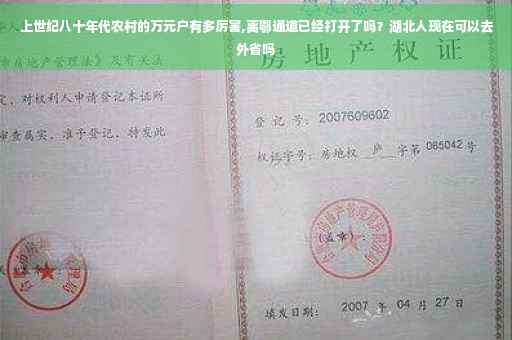 上世纪八十年代农村的万元户有多厉害,离鄂通道已经打开了吗？湖北人现在可以去
外省吗
房地产管理法》及有关
权证
定，对权利人申请登记本证所
审查属实，准予登记，特发此
登记号：2007609602
权证字号：房地权 庐 字第 085042 号
(盖章)：
填发日期： 2007 年 04 月 27 日